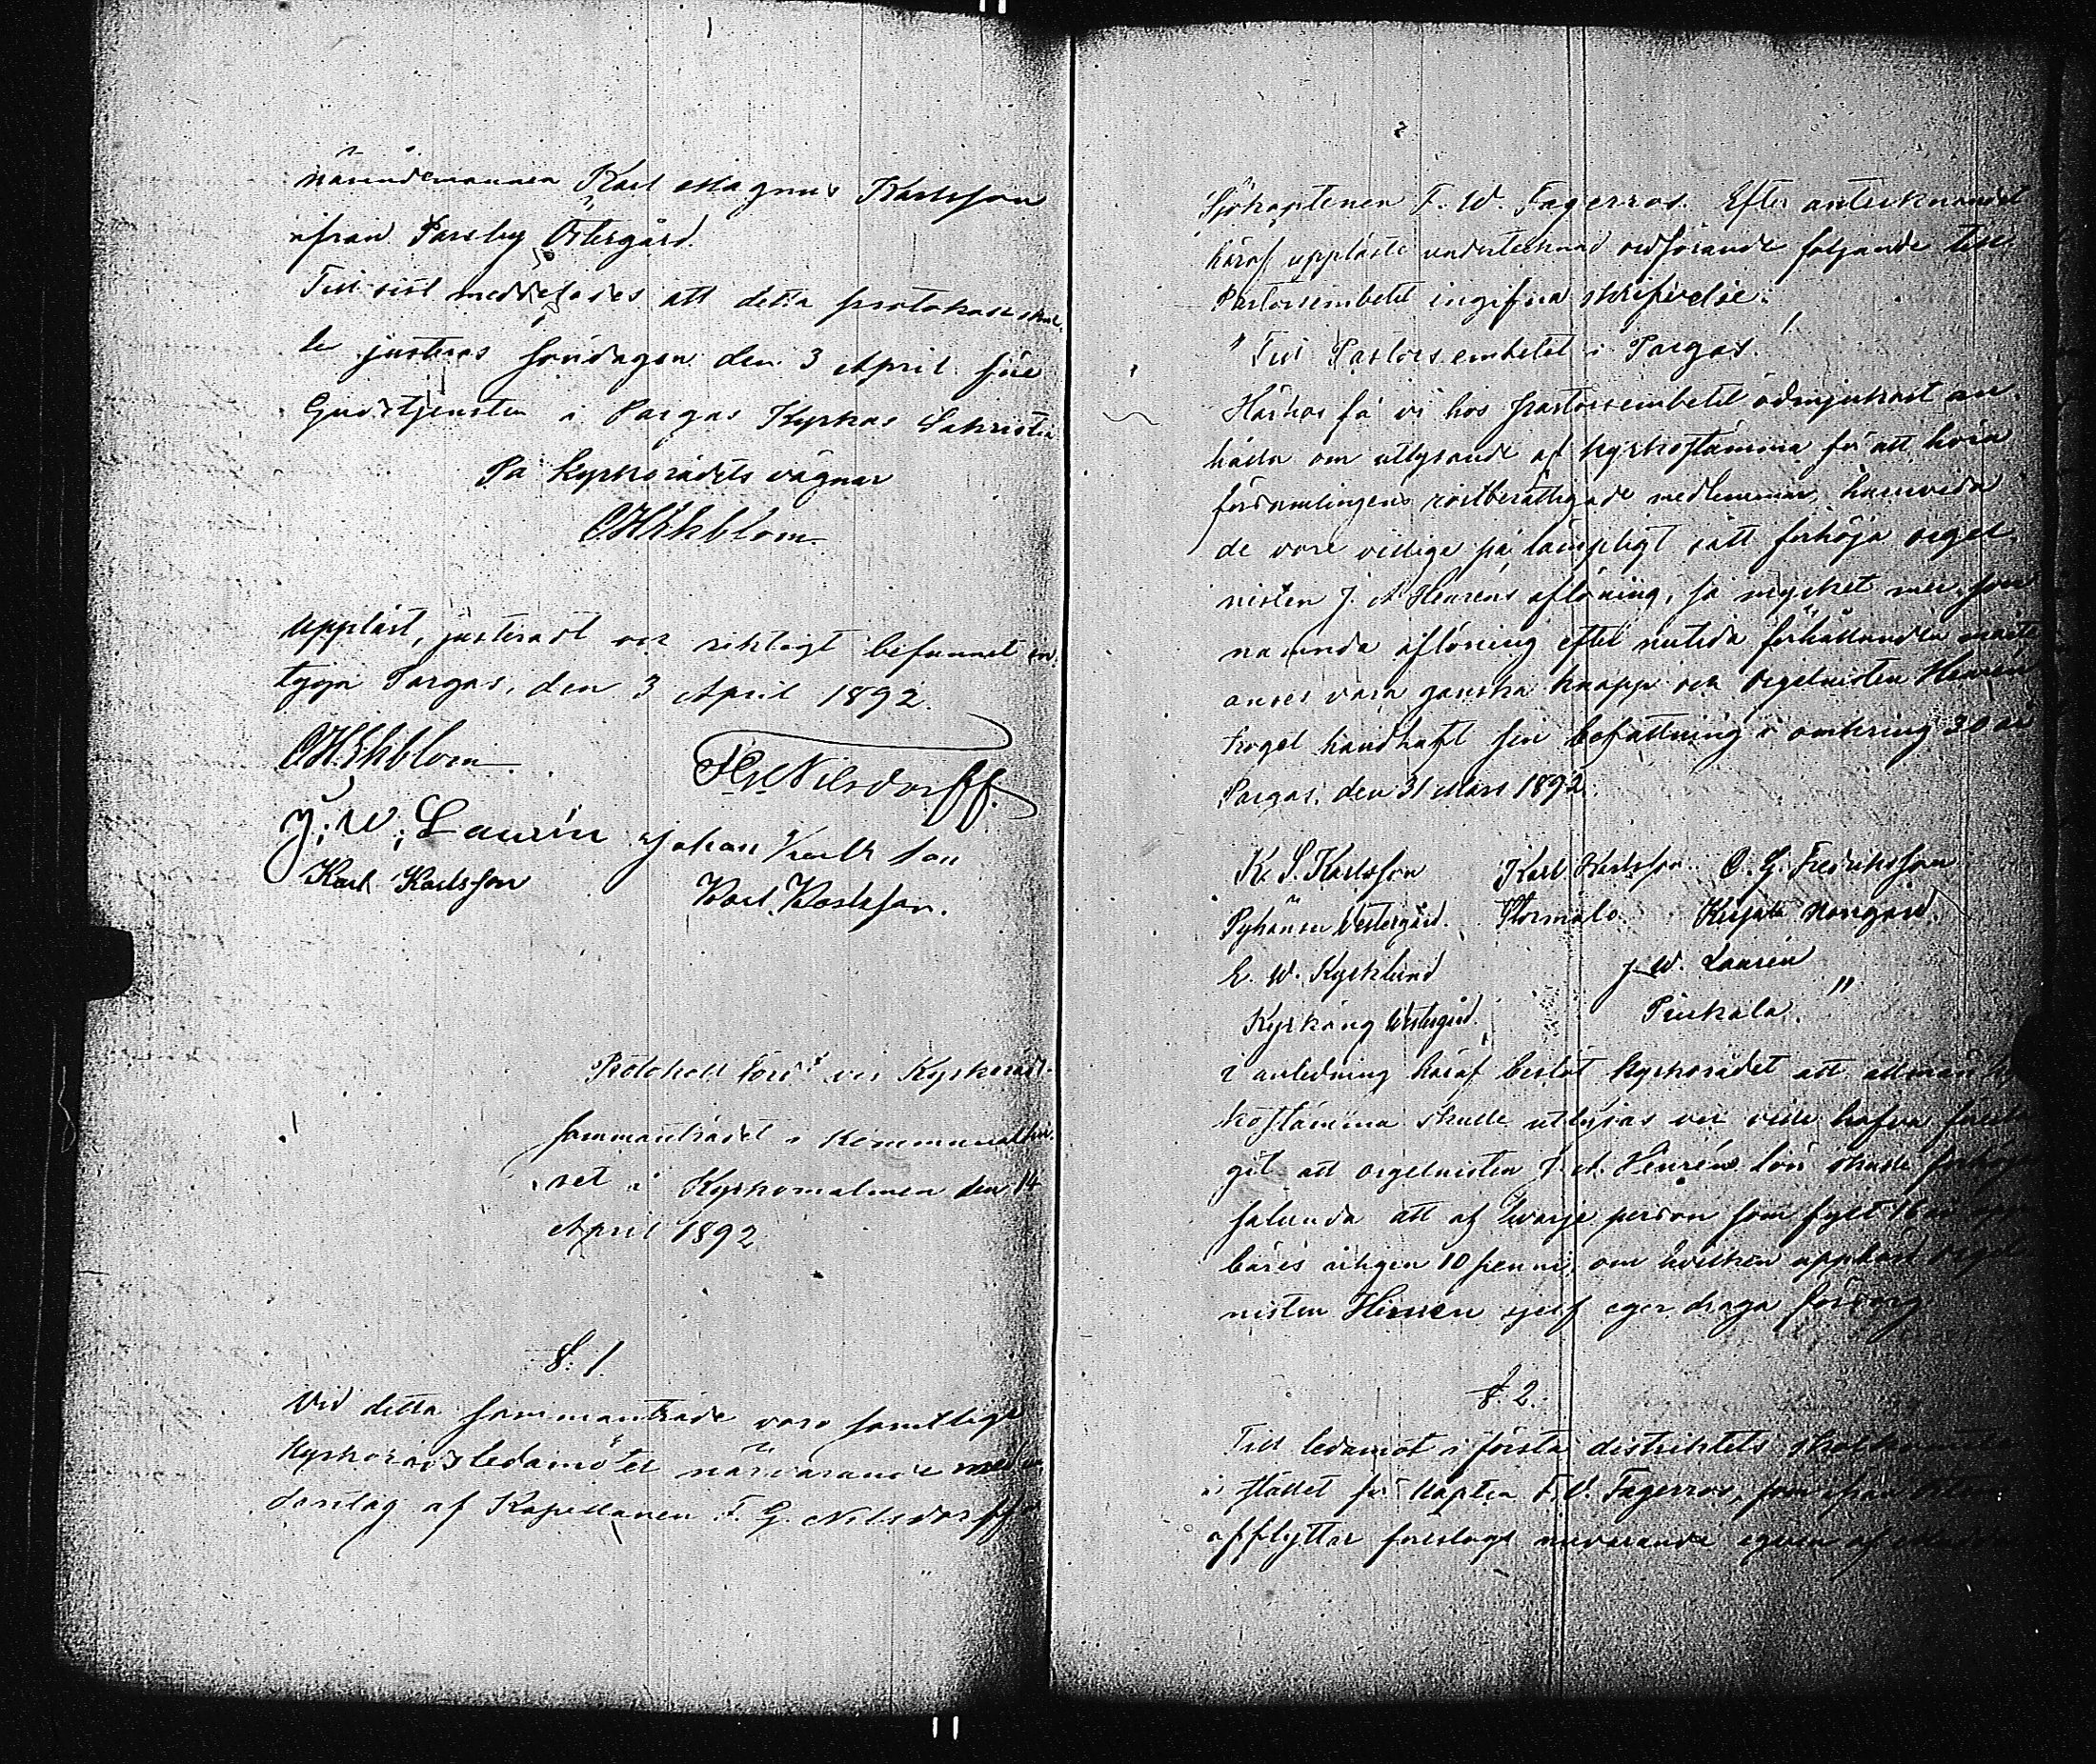 nämndemannen Karl Magnus Karlsson
ifrån Parsby Östergård.
Till sist meddelades att detta protokoll skul-
le justeras söndagen den 3 April före
Gudstjensten i Pargas Kyrkas Sakristia
På Kyrkorådets vägnar
OHEkblom
Uppläst, justeradt och riktigt befunnet in-
tyga Pargas, den 3 April 1892.
OHEkblom
Nilsdorff.
J. W. Laurén Johan Karlsson
Karl Karlsson
Karl Karlsson.
Protokoll fördt vid Kyrkoråds-
sammanträdet i Kommunalhu-
set å Kyrkomalmen den 14
April 1892
§. 1.
Vid detta sammanträde voro samtlige
Kyrkorådsledamöter närvarande med un-
dantag af Kapellanen F. G. Nilsdorff och
Sjökaptenen F. W. Fagerros. Efter antecknandet
häraf upplästes undertecknad ordförande följande till
Pastorsembetet ingifna skrifvelse:
"Till Pastorsembetet i Pargas!
Härhos få vi hos pastorsembetet ödmjukast an-
hålla om utlysande af kyrkostämma för att höra
församlingens röstberättigade medlemmar, huruvida
de vore villige på lämpligt sätt förhöja orgel-
nisten J. A. Henréns aflöning, så mycket mer, som
nämnda aflöning efter nutida förhållanden måste
anses vara ganska knapp och orgelnisten Henrén
troget handhaft sin befattning i omkring 30 år
Pargas, den 31 Mars 1892.
K. S. Karlsson Karl Karlsson O. G. Fredriksson
Pyhänsu Vestergård. Stormälö. Kirjala Norrgård.
E. W. Kyrklund J. W. Laurén
Kyrkäng Vestergård. Piukala. "
I anledning häraf beslöt kyrkorådet att allmän kyr-
kostämma skulle utlysas och ville hafva före-
git att orgelnisten J. A. Henréns lön skulle förhöjas
sålunda att af hvarje person som fyllt 16 år upp-
bäres årligen 10 penni, om hvilken uppbörd orgel-
nisten Henrén sjelf eger draga försorg
§. 2.
Till ledamot i första distriktets skolkomité
i stället för kapten F. W. Fagerros, som ifrån orten
afflyttar föreslogs nuvarande egaren af